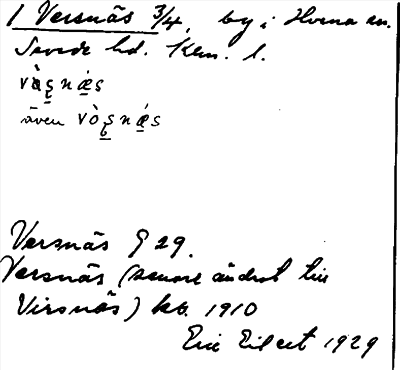 1 Versnäs 3/4, by i Hvena sn.
Sevede hd. Klm. l.
vàʂnæ̀s
även vòʂnæ̀s
Versnäs G 29.
Versnäs (senare ändrat till
Virsnäs) kb. 1910
Eric Eilert 1929